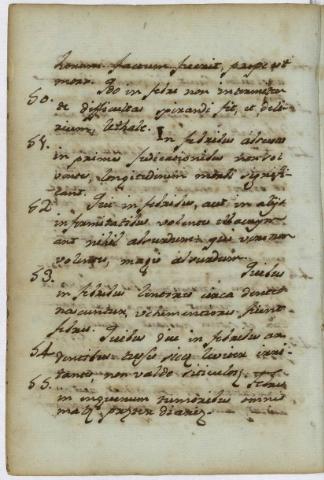 bonum factum fuerit, prope est
mors.
50. Ubi in febre non intermitte
te difficultas spirandi fit, et deli
rium, lethale.
51. In febribus abscessus
in primis judicationibus non sol
ventes, longitudinem morbi signifi
cant.
52. Qui in febribus, aut in alijs
infirmitatibus volentes illacrym
ant nihil absurdum: qui vero non
volentes, magis absurdum.
53. Quibus
in febribus lentores circa dentes
nascuntur, vehementiores fiunt
febres.
54. Quibus in febribus ar
dentibus tusses siccæ leviter irri
tantes non valde siticulosi,
55. Febres
in inguinum tumoribus omnes
malæ præter diarias